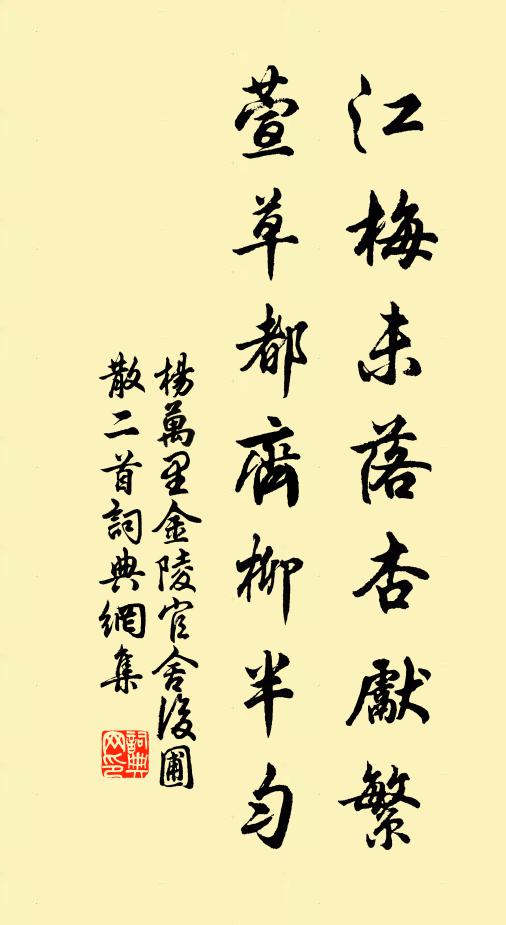 江梅未落杏獻繁
萱草都齊柳半勻
楊萬里金陵官舍後圃
散二首詞典網集
詞典
网印